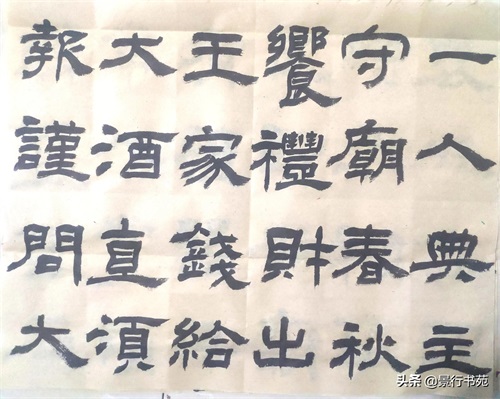 一人典主
守廟春秋
饗禮財出
王家錢給
大酒直須
報謹問大
头条 @景行书苑